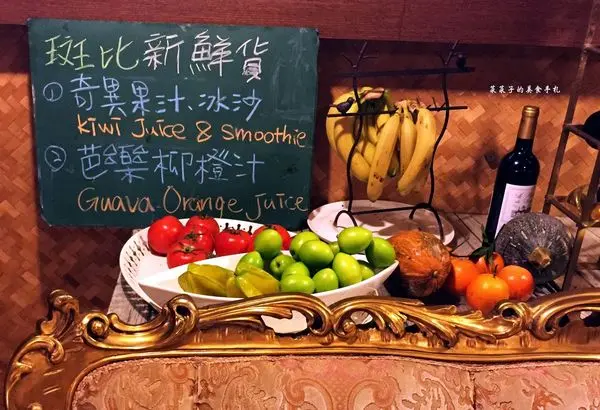 斑比新鮮貨
① 奇異果汁、冰沙
kiwi Juice & Smoothie
② 芭樂柳橙汁
Guava Orange Juice
菜菜子的美食手札